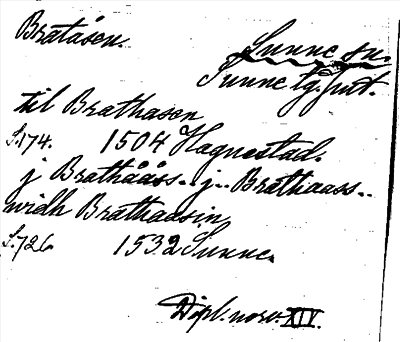 Bratåsen.
Sunne sn.
Sunne tg. Jmt.
til Brathasen
S. 174. 1504 Hagnestad.
j Brathååss.. j.. Brathaass..
widh Brathaasin
S. 726 1532 Sunne.
Dipl. norv. XIV.